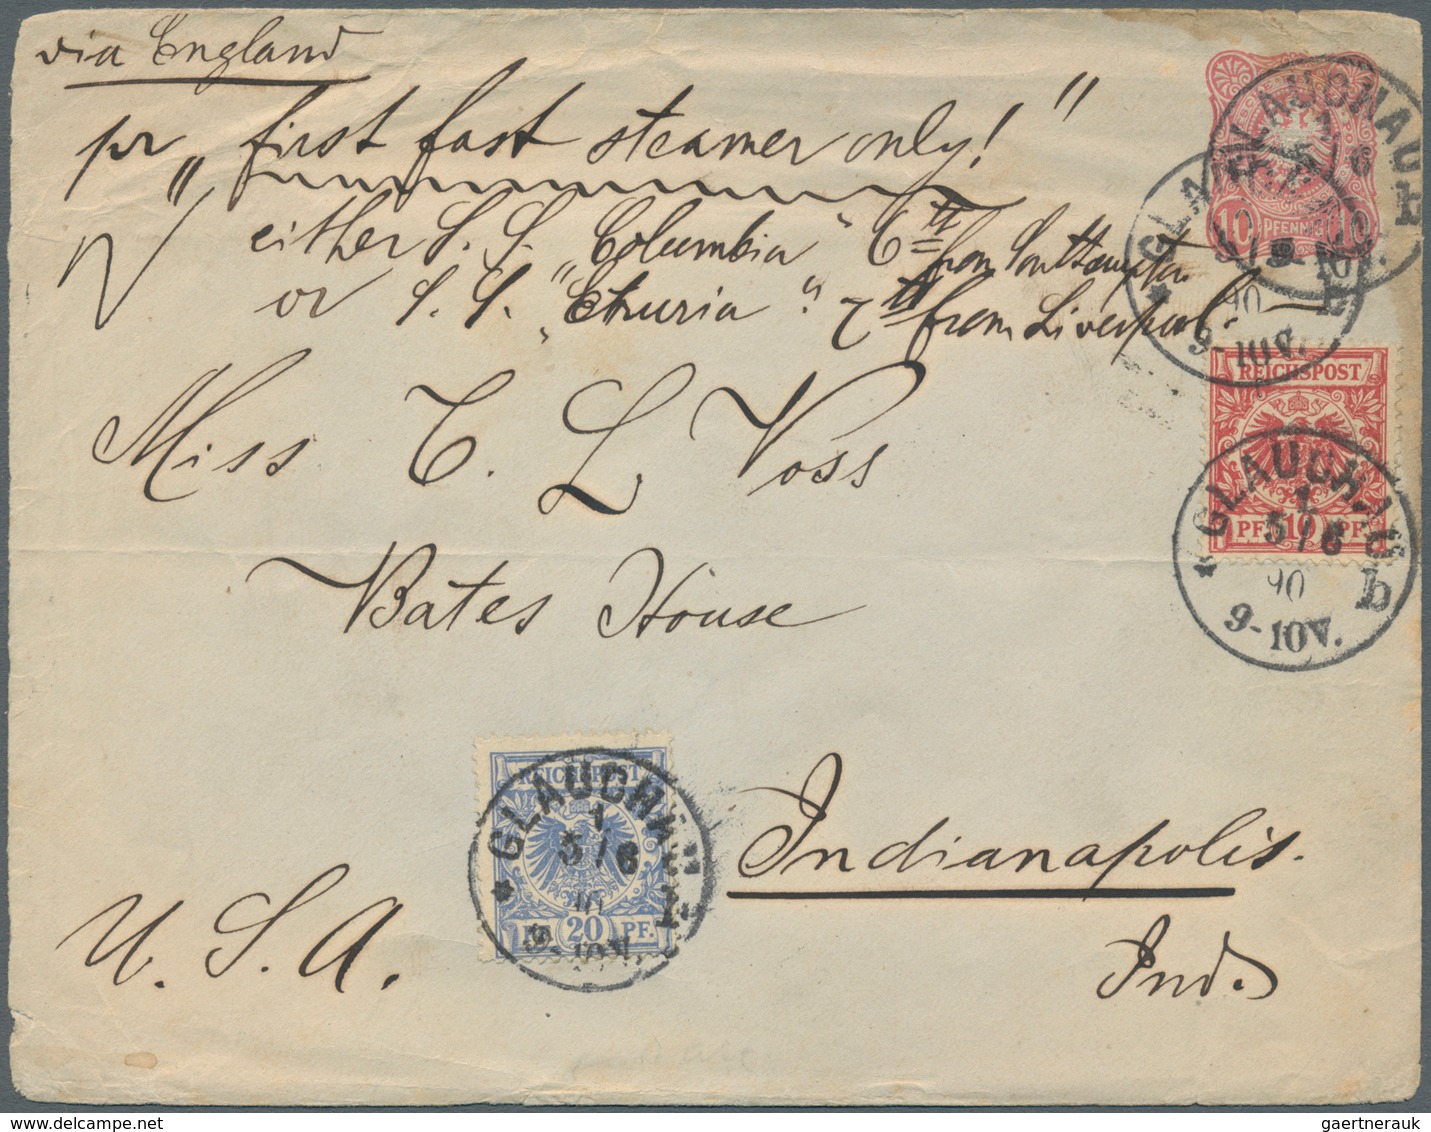 via England
pr „first fast steamer only!"
either S. S. "Columbia" 6tt from Southampton
or S. S. "Etruria" 7tt from Liverpool.
Miss C. L Voss
Bates House
Indianapolis.
Ind.
U. S. A.
GLAUCHAU
5/6
10 PFENNIG 10
9-10V.
GLA
90
9-10V.
REICHSPOST
PF. 10 PF.
* GLAUCHAU
1
5/6
90
b
9-10V.
REICHSPOST
20 PF.
* GLAUCHAU
1
5/6
9-10V.
gaertnerauk